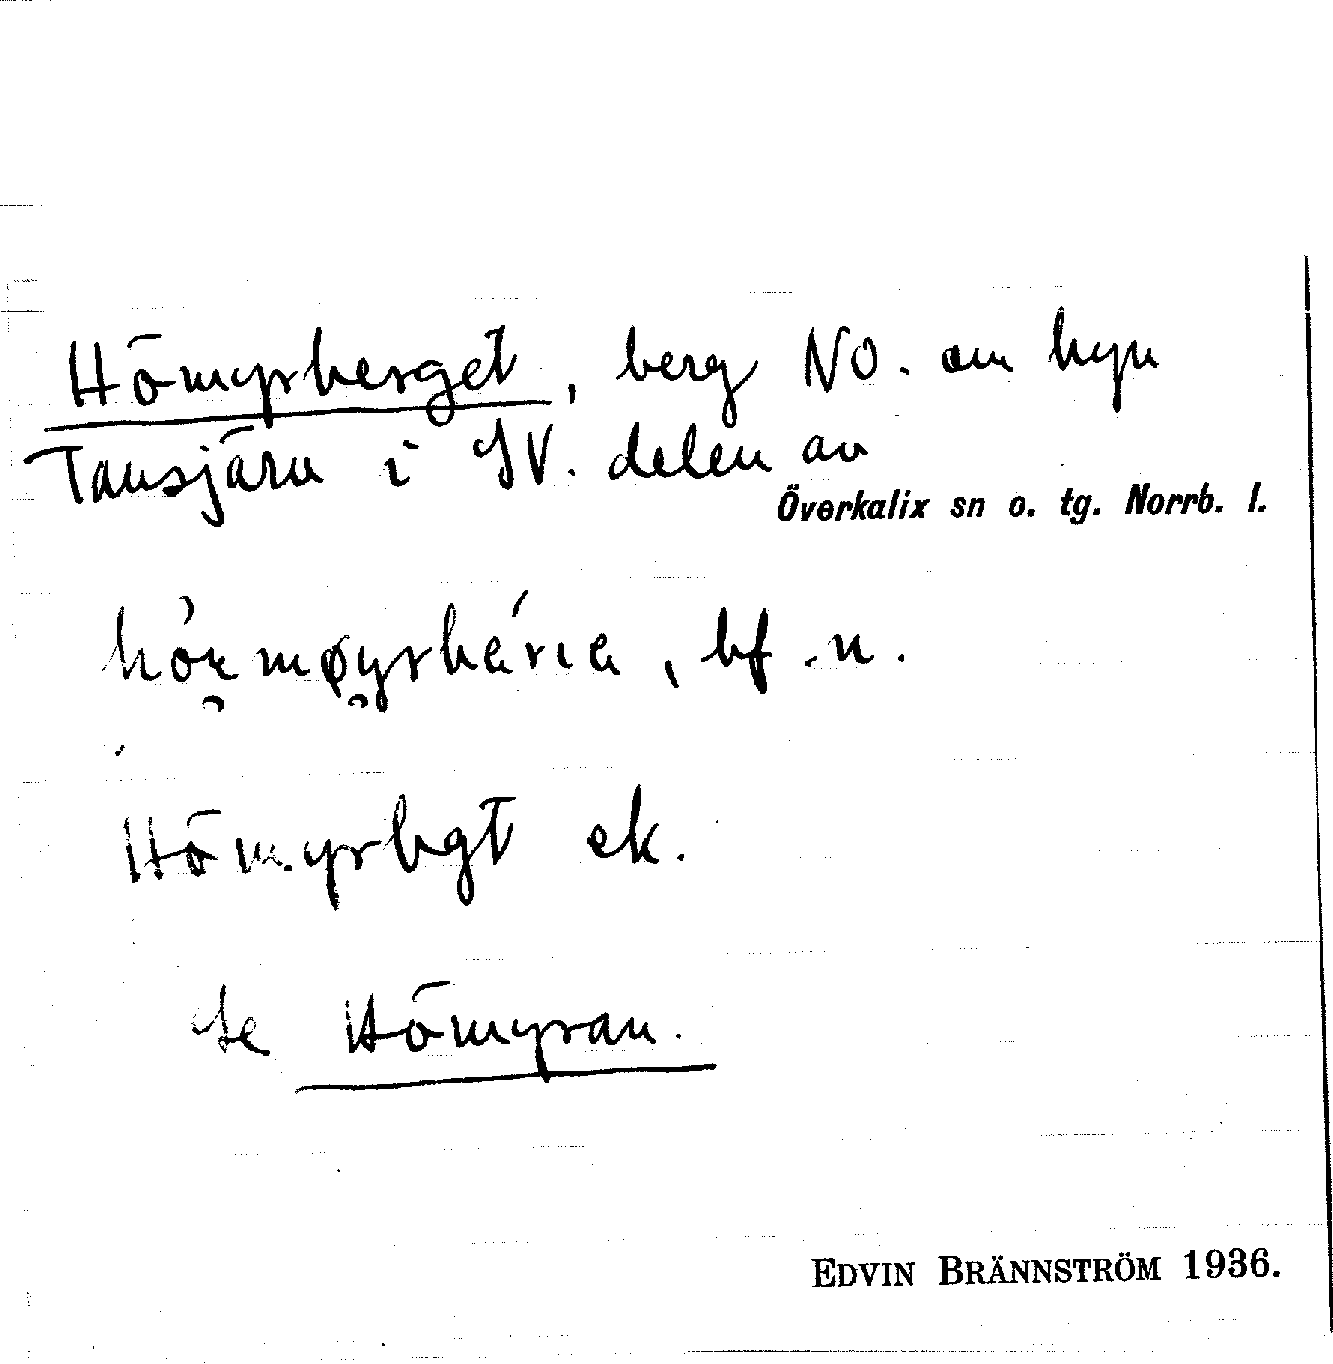 Hömyrberget, berg NO. om byn
Tansjärn i SV. delen av
Överkalix sn o. tg. Norrb. l.
bf. n.
Hömyrbgt ek.
Se Hömyran.
EDVIN BRÄNNSTRÖM 1936.